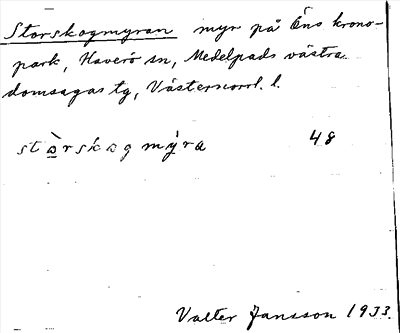 Storskogmyran myr på Ens krono-
park, Haverö sn, Medelpads västra
domsagas tg, Västernorrl. l.
stɔ̀rskɔgmýra 48
Valter Jansson 1933.